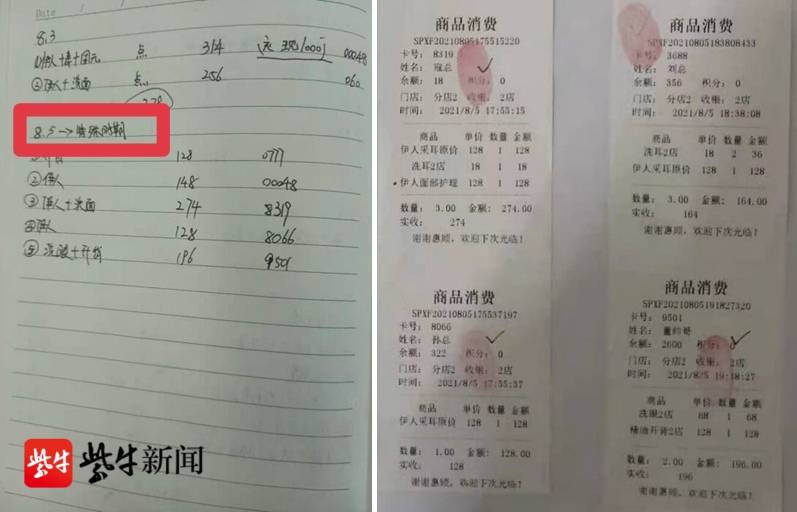 Date
8.3
点 314 00048
点 256 060
8.5→特殊时期
128 0777
②伊人 148 00048
③伊人+洗面 274 8319
④伊人 128 8066
⑤洗眼+开背 196 9501
紫牛新闻
商品消费
SPXF20210805175515220
卡号: 8319
姓名: 寇总
余额: 18 积分: 0
门店: 分店2 收银: 2店
时间: 2021/8/5 17:55:15
商品 单价 数量 金额
伊人采耳原价 128 1 128
洗耳2店 18 1 18
伊人面部护理 128 1 128
数量: 3.00 金额: 274.00
实收: 274
谢谢惠顾，欢迎下次光临!
商品消费
SPXF20210805183808433
卡号: 3688
姓名: 刘总
余额: 356 积分: 0
门店: 分店2 收银: 2店
时间: 2021/8/5 18:38:08
商品 单价 数量 金额
洗耳2店 18 2 36
伊人采耳原价 128 1 128
数量: 3.00 金额: 164.00
实收: 164
谢谢惠顾，欢迎下次光临!
商品消费
SPXF20210805175537197
卡号: 8066
姓名: 孙总
余额: 322 积分: 0
门店: 分店2 收银: 2店
时间: 2021/8/5 17:55:37
商品 单价 数量 金额
伊人采耳原价 128 1 128
数量: 1.00 金额: 128.00
实收: 128
谢谢惠顾，欢迎下次光临!
商品消费
SPXF20210805191827320
卡号: 9501
姓名: 董帅哥
余额: 2600 积分: 0
门店: 分店2 收银: 2店
时间: 2021/8/5 19:18:27
商品 单价 数量 金额
洗眼2店 68 1 68
精油开背2店 128 1 128
数量: 2.00 金额: 196.00
实收: 196
谢谢惠顾，欢迎下次光临!